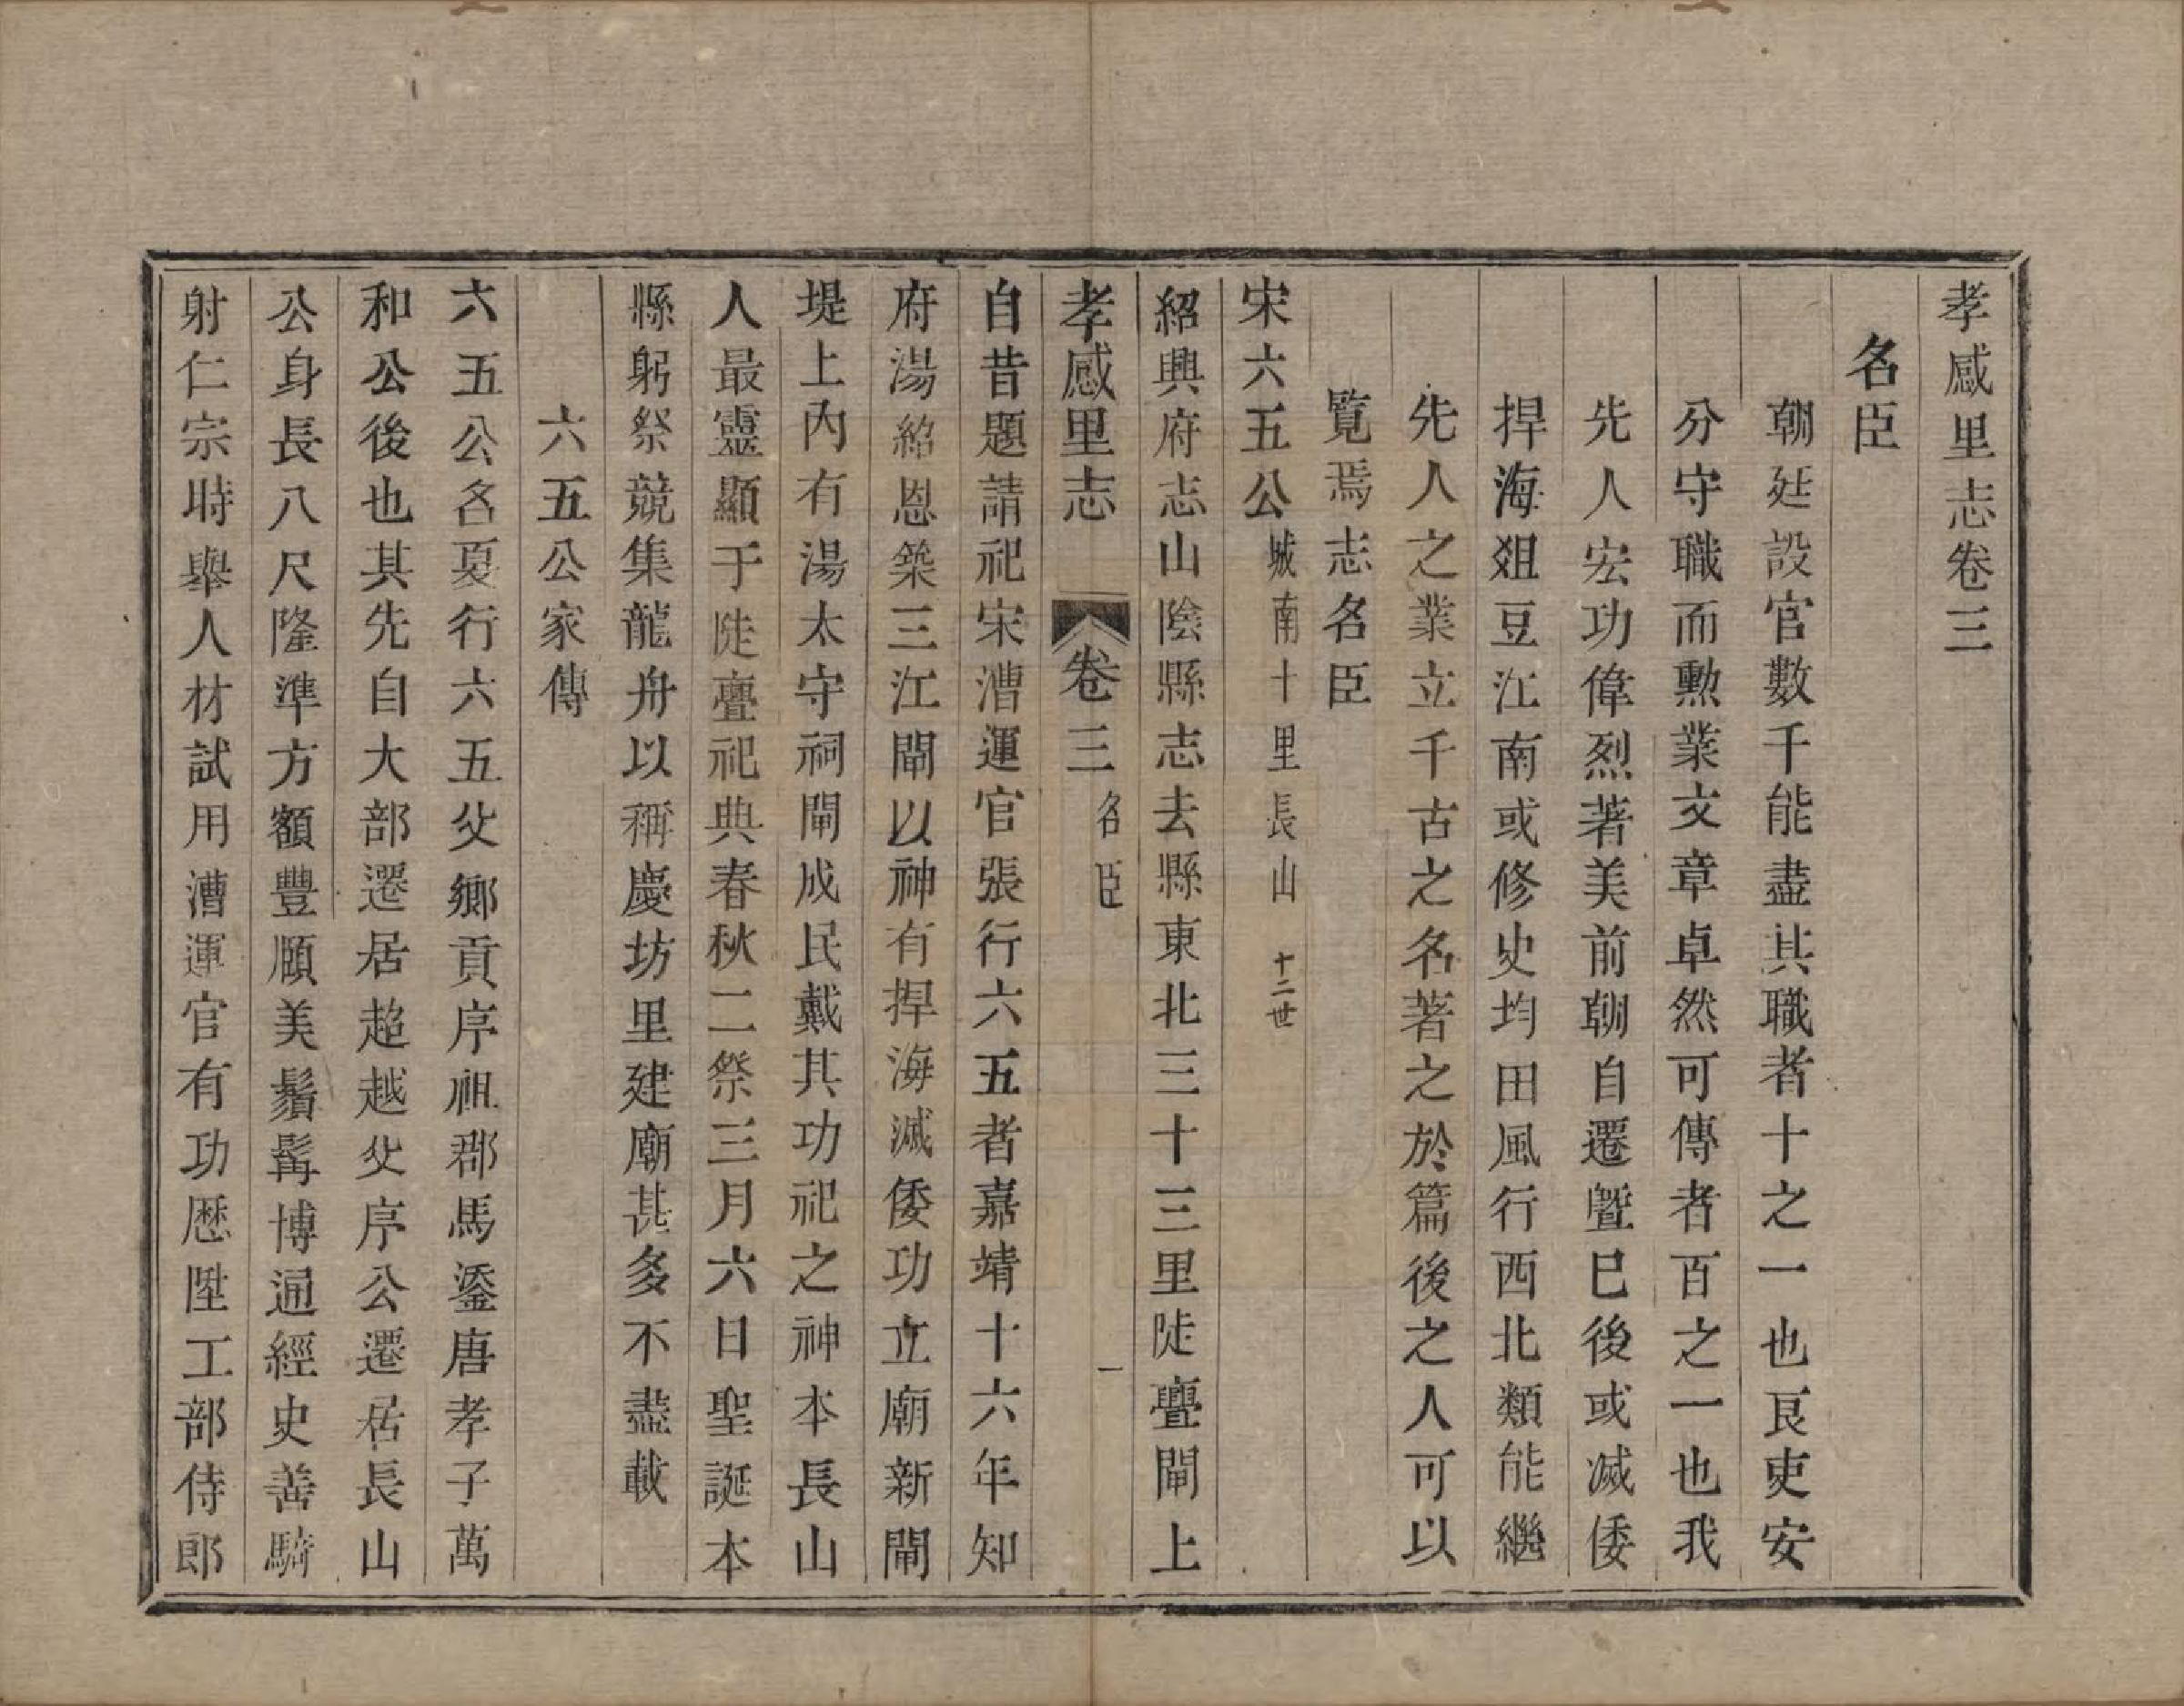 孝感里志卷三
名臣
朝廷設官數千能盡其職者十之一也良吏安
分守職而勲業文章卓然可傳者百之一也我
先人宏功偉烈著美前朝自遷暨巳後或滅倭
捍海俎豆江南或修史均田風行西北類能繼
先人之業立千古之名著之於篇後之人可以
覽焉志名臣
宋六五公城南十里長山 十二世
紹興府志山陰縣志去縣東北三十三里陡亹閘上
孝感里志 卷三 名臣 一
自昔題請祀宋漕運官張行六五者嘉靖十六年知
府湯紹恩築三江閘以神有捍海滅倭功立廟新閘
堤上內有湯太守祠閘成民戴其功祀之神本長山
人最靈顯于陡亹祀典春秋二祭三月六日聖誕本
縣躬祭競集龍舟以稱慶坊里建廟甚多不盡載
六五公家傳
六五公名夏行六五父鄉貢序祖郡馬鎏唐孝子萬
和公後也其先自大部遷居趙越父序公遷居長山
公身長八尺隆準方額豐頤美鬚髯博通經史善騎
射仁宗時舉人材試用漕運官有功歷陞工部侍郎